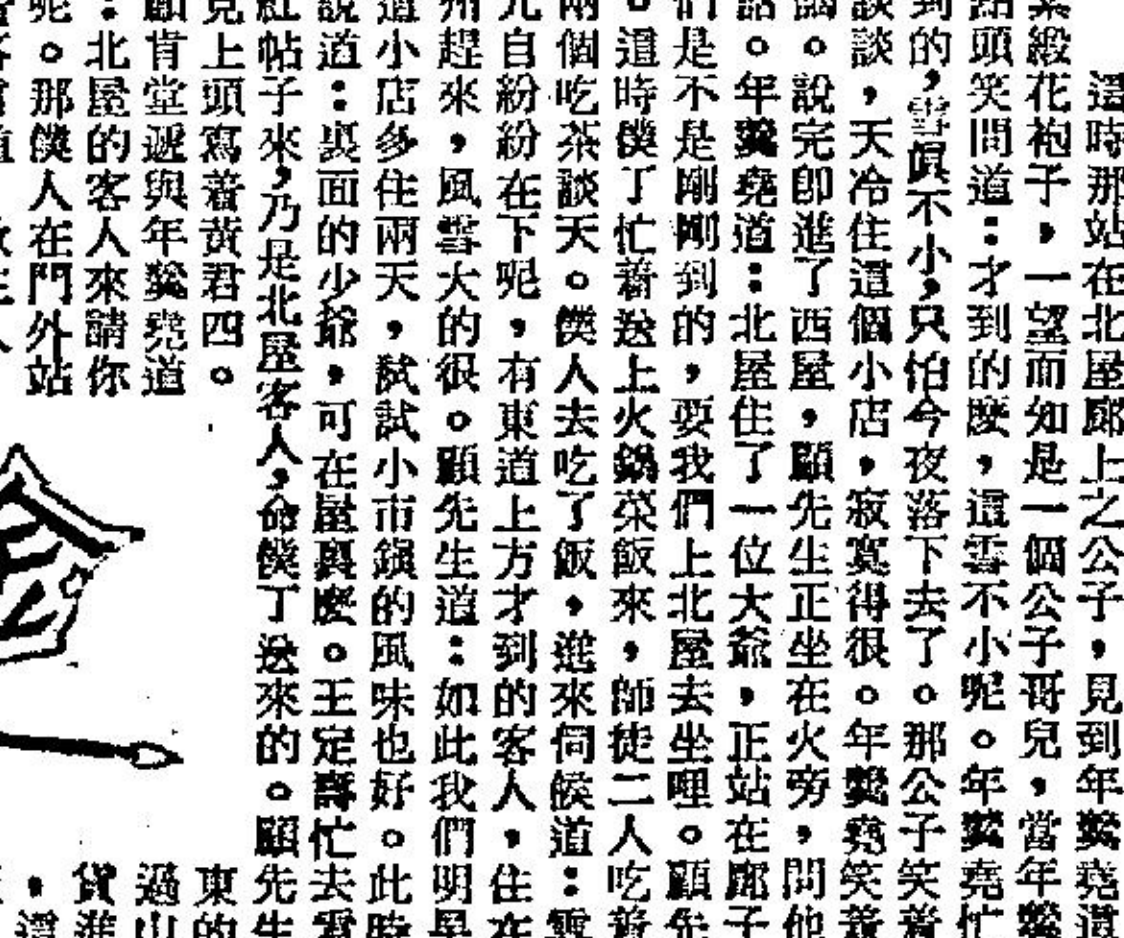 這時那站在北屋廊上之公子，見到年羹堯這
紫緞花袍子，一望而知是一個公子哥兒，當年羹
點頭笑問道：才到的麽，這雪不小呢。年羹堯忙
到的，雪眞不小，只怕今夜落下去了。那公子笑着
談談，天冷住這個小店，寂寞得很。年羹堯笑着
個。說完卽進了西屋，顧先生正坐在火旁，問他
話。年羹堯道：北屋住了一位大爺，正站在廊子
們是不是剛剛到的，要我們上北屋去坐哩。顧先
。這時僕丁忙着送上火鍋菜飯來，師徒二人吃着
兩個吃茶談天。僕人去吃了飯，進來伺候道：雪
兀自紛紛在下呢，有東道上方才到的客人，住在
州趕來，風雪大的很。顧先生道：如此我們明早
道小店多住兩天，試試小市鎮的風味也好。此時
說道：裏面的少爺，可在屋裏麽。王定壽忙去看
紅帖子來，乃是北屋客人，命僕丁送來的。顧先生
見上頭寫着黃君四。
顧肯堂遞與年羹堯道
：北屋的客人來請你
呢。那僕人在門外站
東的
過山
貨進
，還